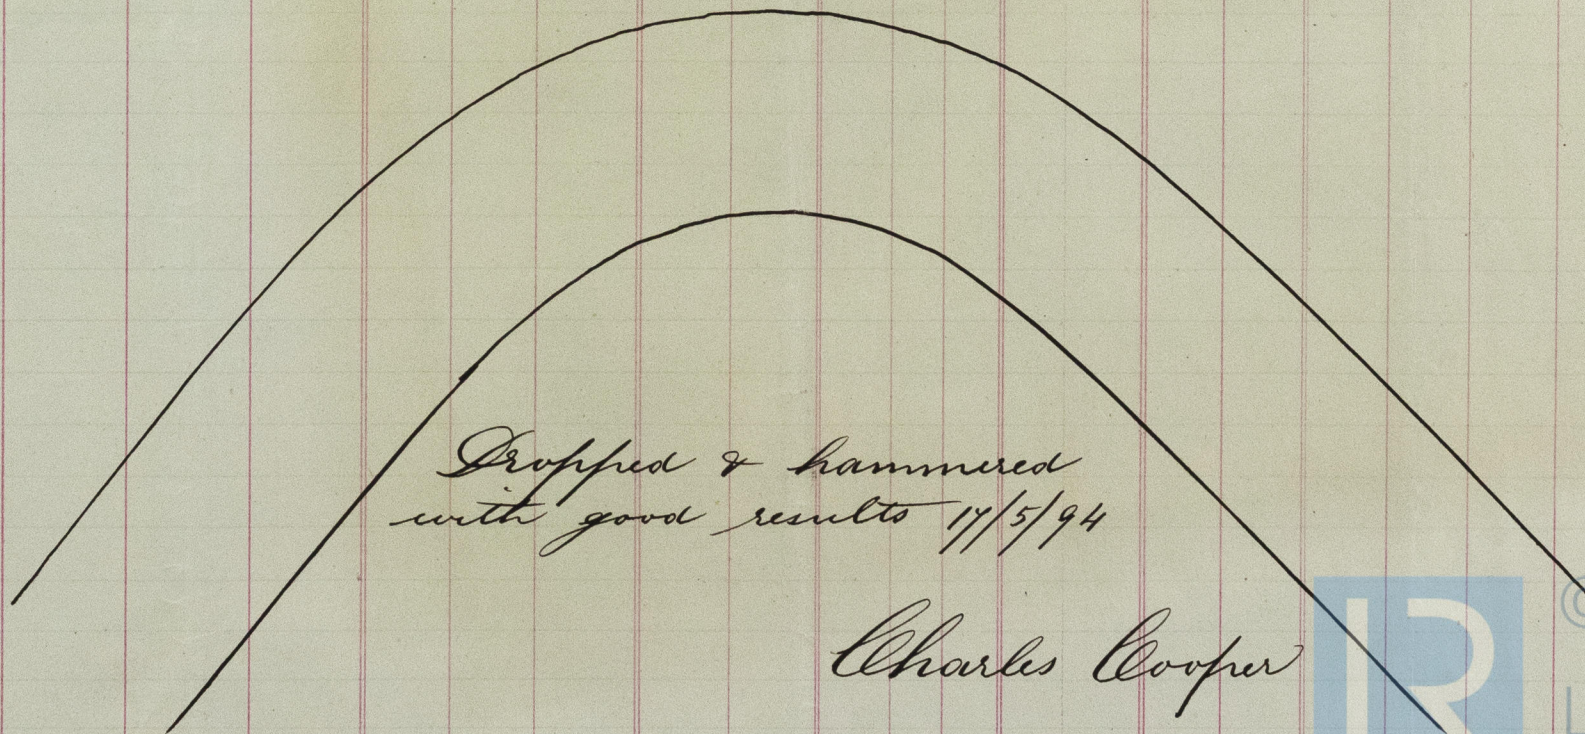 Dropped & hammered
with good results 17/5/94
Charles Cooper
LR
©